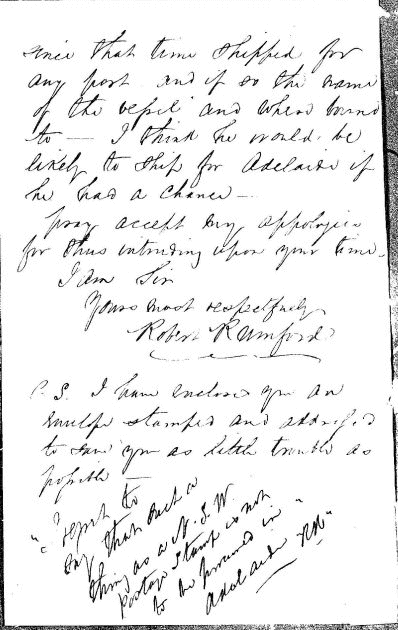 since that time shipped for
any port and if so the name
of the vessel and where bound
to — I think he would be
likely to ship for Adelaide if
he had a chance —
pray accept my appologies
for thus intruding upon your time.
I am Sir
Yours most respectfully
Robert Rumford
P.S. I have enclosed you an
envelope stamped and addressed
to save you as little trouble as
possible —
"I regret to
say that such a
thing as a N.S.W.
postage stamp is not
to be procured in
Adelaide RR"